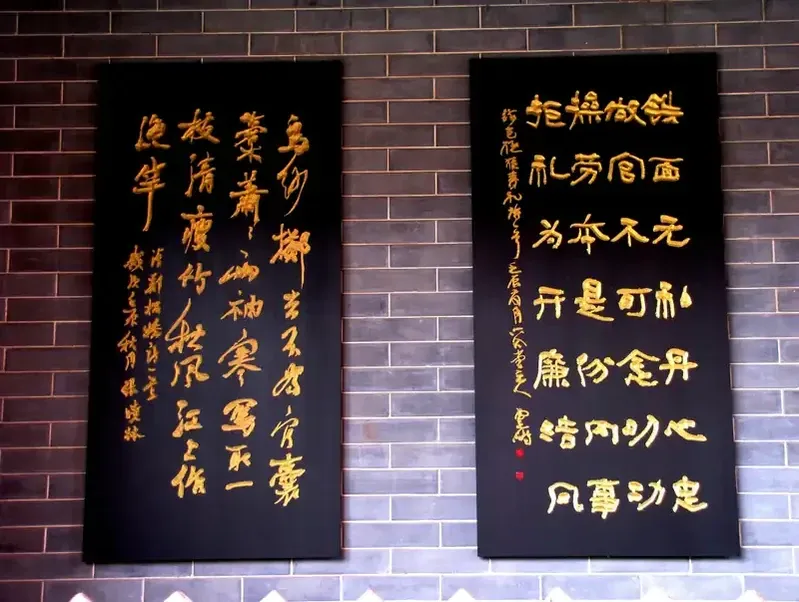 铁面无私丹心忠
做官不可念叨功
操劳本是份内事
拒礼为开廉洁风
包拯拒寿礼诗一首
乌纱掷去不为官囊
橐萧〻两袖寒写取一
枝清瘦竹秋风江上作
渔竿
清郑板桥诗一首
岁次壬辰秋月